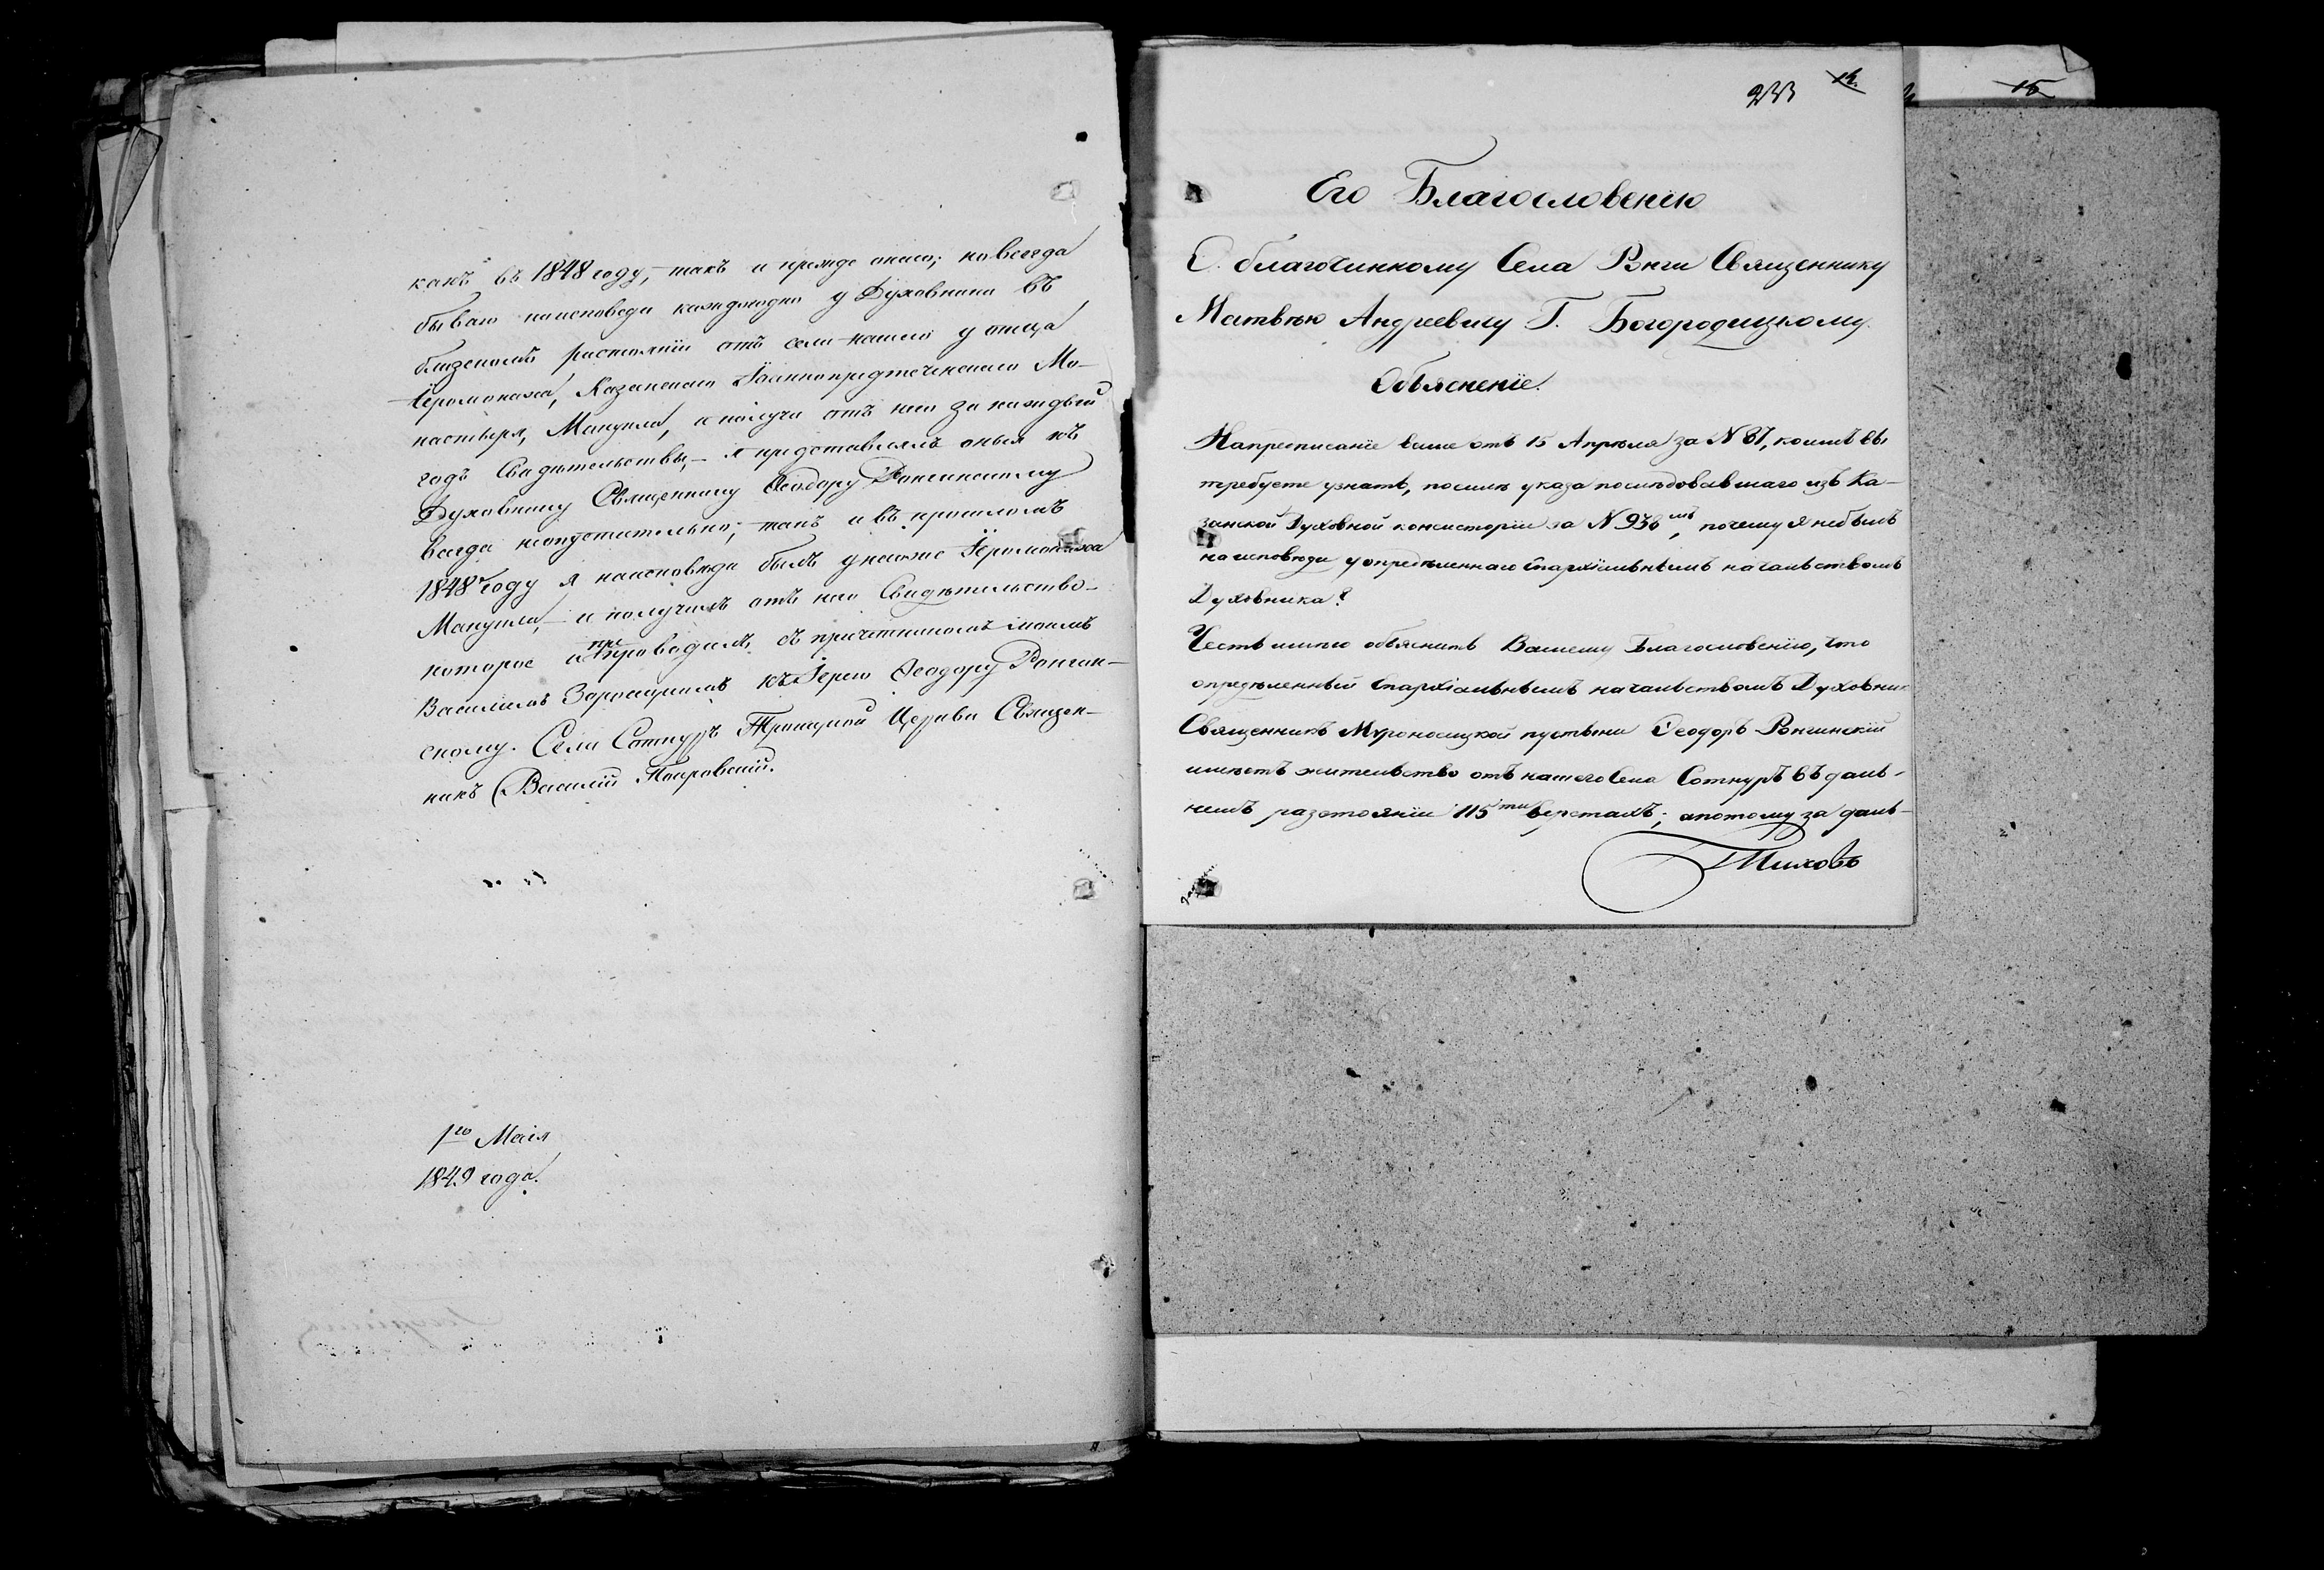 какъ въ 1848 году, – такъ и прежде онаго; но всегда
бываю на исповеди каждогодно у Духовника въ
близкомъ разстоянiи отъ села нашего у отца
Iеромонаха, Казанскаго Iоаннопредтеченскаго Мо-
настыря, Мануила, и получа отъ него за каждый
годъ Свидѣтельствы, – я представлялъ оныя къ
Духовнику Священнику Ѳеодору Ронгинскому
всегда неопустительно; – такъ и въ прошломъ
1848 году я на исповѣди былъ у него же Iеромонаха
Мануила, – и получилъ отъ него Свидѣтельство –
которое и препроводилъ съ причетникомъ моимъ
Василiемъ къ Iерею Ѳеодору Ронгин-
скому. Села Сотнуръ Троицкой Церкви Священ-
никъ Василiй Покровскiй.
1го Маiя
1849 года.
233
15
Его Благословенiю
О. благочинному Села Ронги Священнику
Матвѣю Андреевичу Г. Богородицкому.
Объясненiе.
На предписанiе ваше отъ 15 Апрѣля за N 87, коимъ вы
требуете узнать, по силѣ указа послѣдовавшаго изъ Ка-
занской Духовной консисторiи за N 936мъ, почему я не былъ
на исповѣди у опредѣленнаго Епархiальнымъ начальствомъ
Духовника?
Честь имѣю объяснить Вашему Благословенiю, что
опредѣленный Епархiальнымъ начальствомъ Духовник
Священникъ Мѵроносицкой пустыни Ѳеодоръ Ронгинскiй
имѣетъ жительство отъ нашего Села Сотнуръ въ даль-
немъ разстоянiи 115ти верстахъ; а потому за даль-
Тиховъ